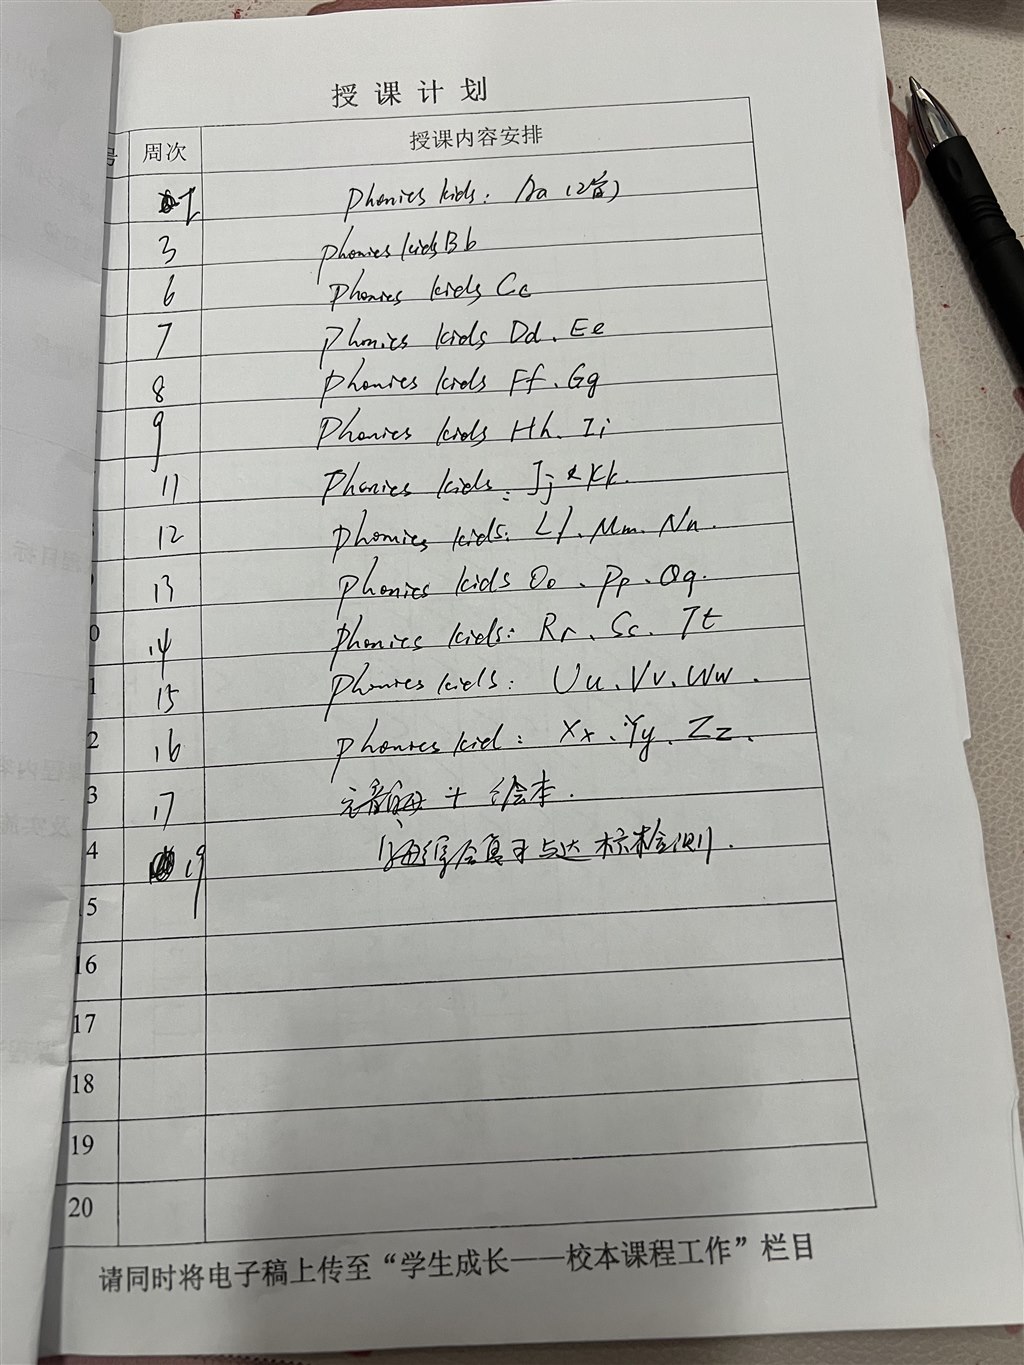 授课计划
号 周次 授课内容安排
2 Phonics kids: Aa (2节)
3 Phonics kids Bb
6 Phonics kids Cc
7 Phonics kids Dd、Ee
8 Phonics kids Ff、Gg
9 Phonics kids Hh、Ii
11 Phonics kids: Jj & Kk.
12 Phonics kids: Ll、Mm、Nn.
13 Phonics kids Oo、Pp、Qq.
0 14 Phonics kids: Rr、Ss、Tt
1 15 Phonics kids: Uu、Vv、Ww.
2 16 Phonics kid: Xx、Yy、Zz.
3 17 元音字母 + 绘本.
4 19 综合复习与达标检测.
15
16
17
18
19
20
请同时将电子稿上传至“学生成长——校本课程工作”栏目